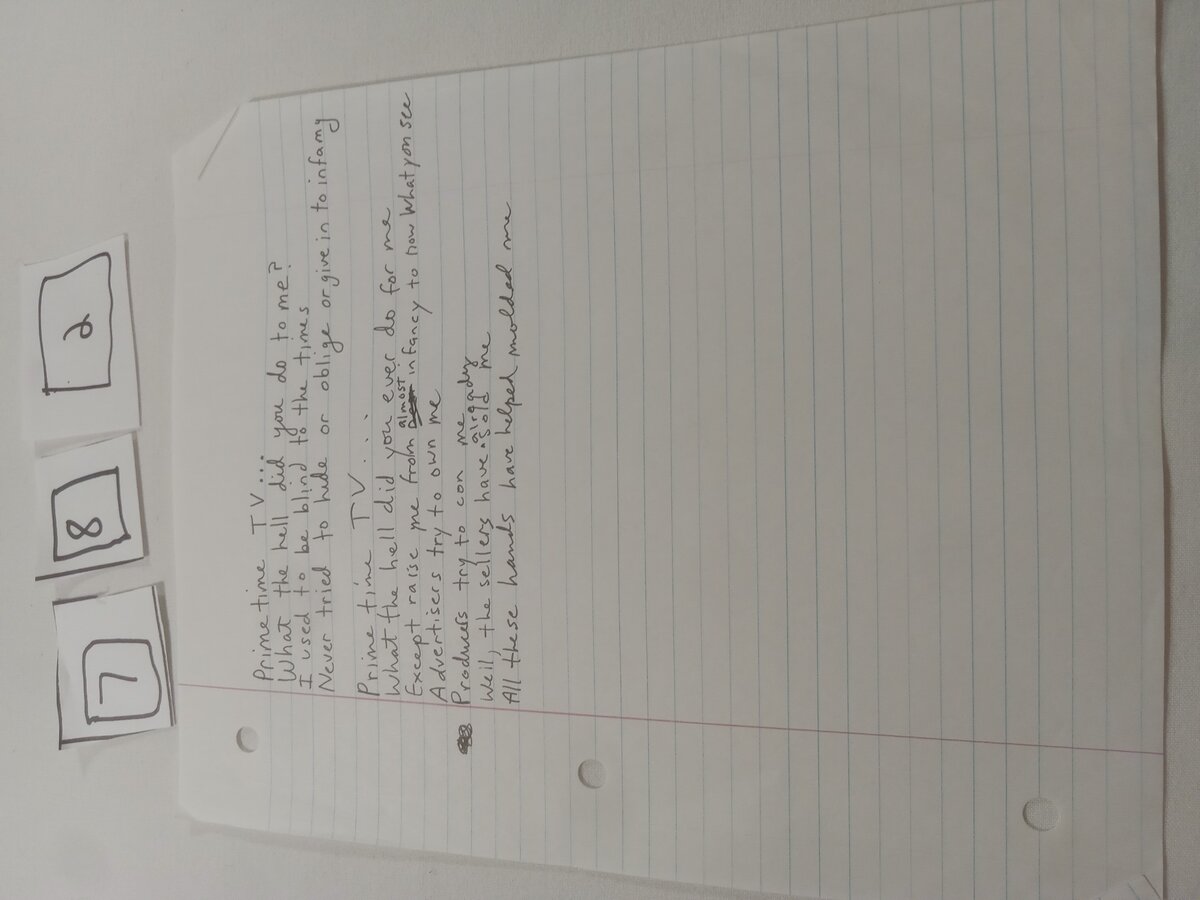 7 8 2
Prime time TV...
What the hell did you do to me?
I used to be blind to the times
Never tried to hide or oblige or give in to infamy
Prime time TV...
What the hell did you ever do for me
Except raise me from almost infancy to now what you see
Advertisers try to own me
Producers try to con me
Well, the sellers have already sold me
All these hands have helped molded me